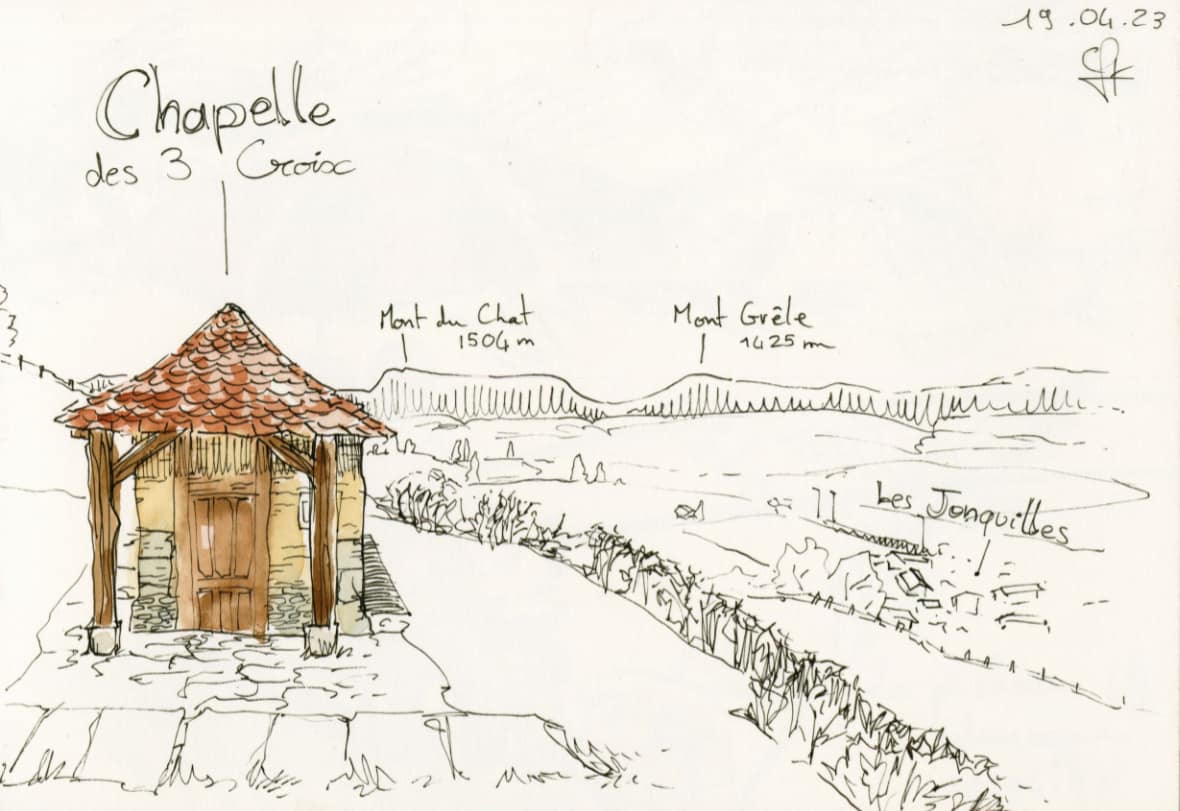 19.04.23
Chapelle
des 3 Croix
Mont du Chat
1504 m
Mont Grêle
1425 m
Les Jonquilles